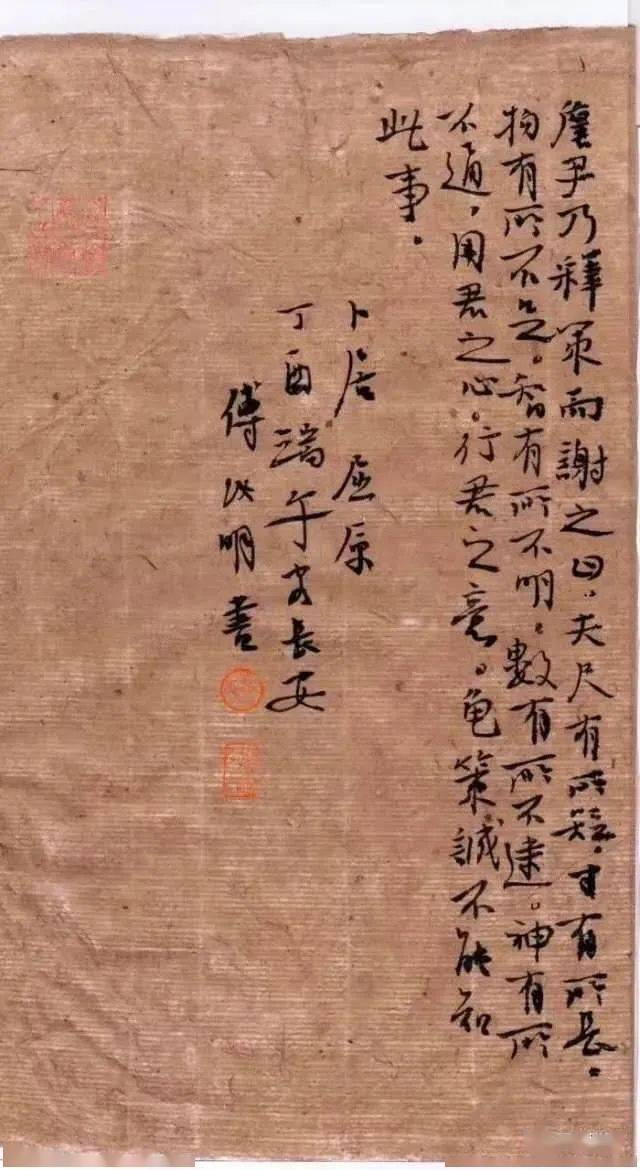 詹尹乃釋策而謝之曰。夫尺有所短。寸有所長。
物有所不足。智有所不明。數有所不逮。神有所
不通。用君之心。行君之意。龟策誠不能知
此事。
卜居 屈原
丁酉端午 长安
傅 明書